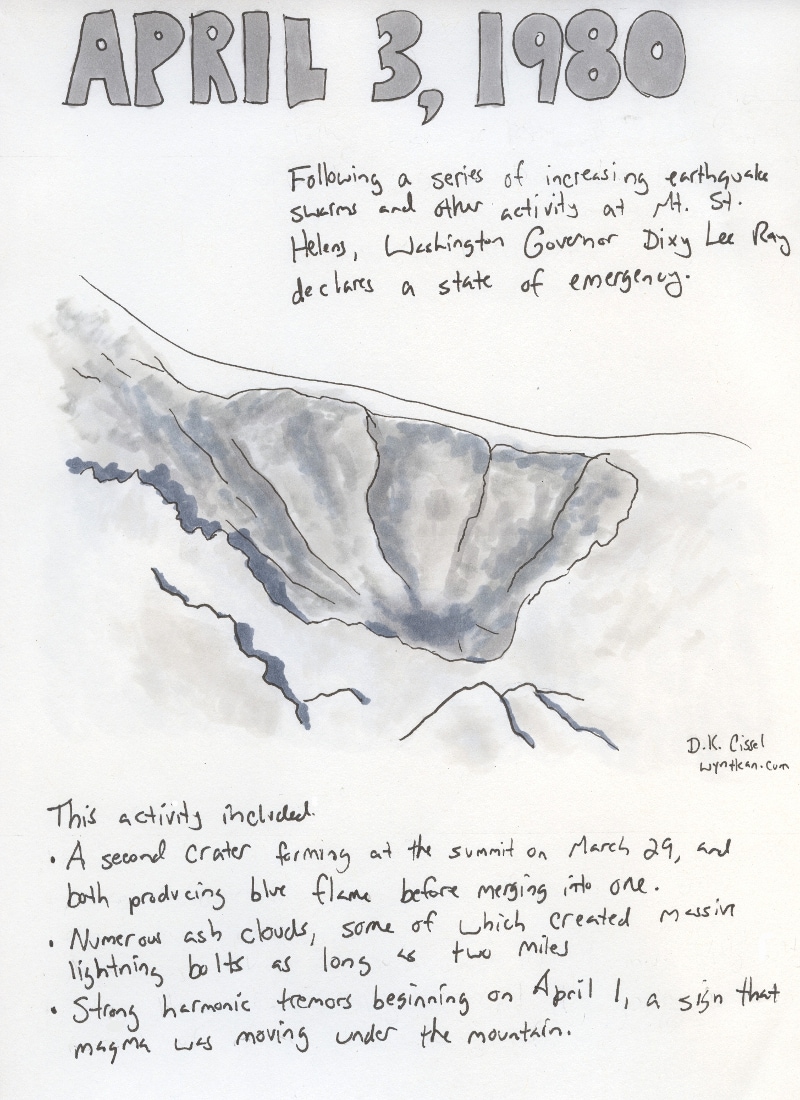 APRIL 3, 1980
Following a series of increasing earthquake
swarms and other activity at Mt. St.
Helens, Washington Governor Dixy Lee Ray
declares a state of emergency.
D.K. Cissel
wyntkan.com
This activity included.
• A second crater forming at the summit on March 29, and
both producing blue flame before merging into one.
• Numerous ash clouds, some of which created massive
lightning bolts as long as two miles
• Strong harmonic tremors beginning on April 1, a sign that
magma was moving under the mountain.